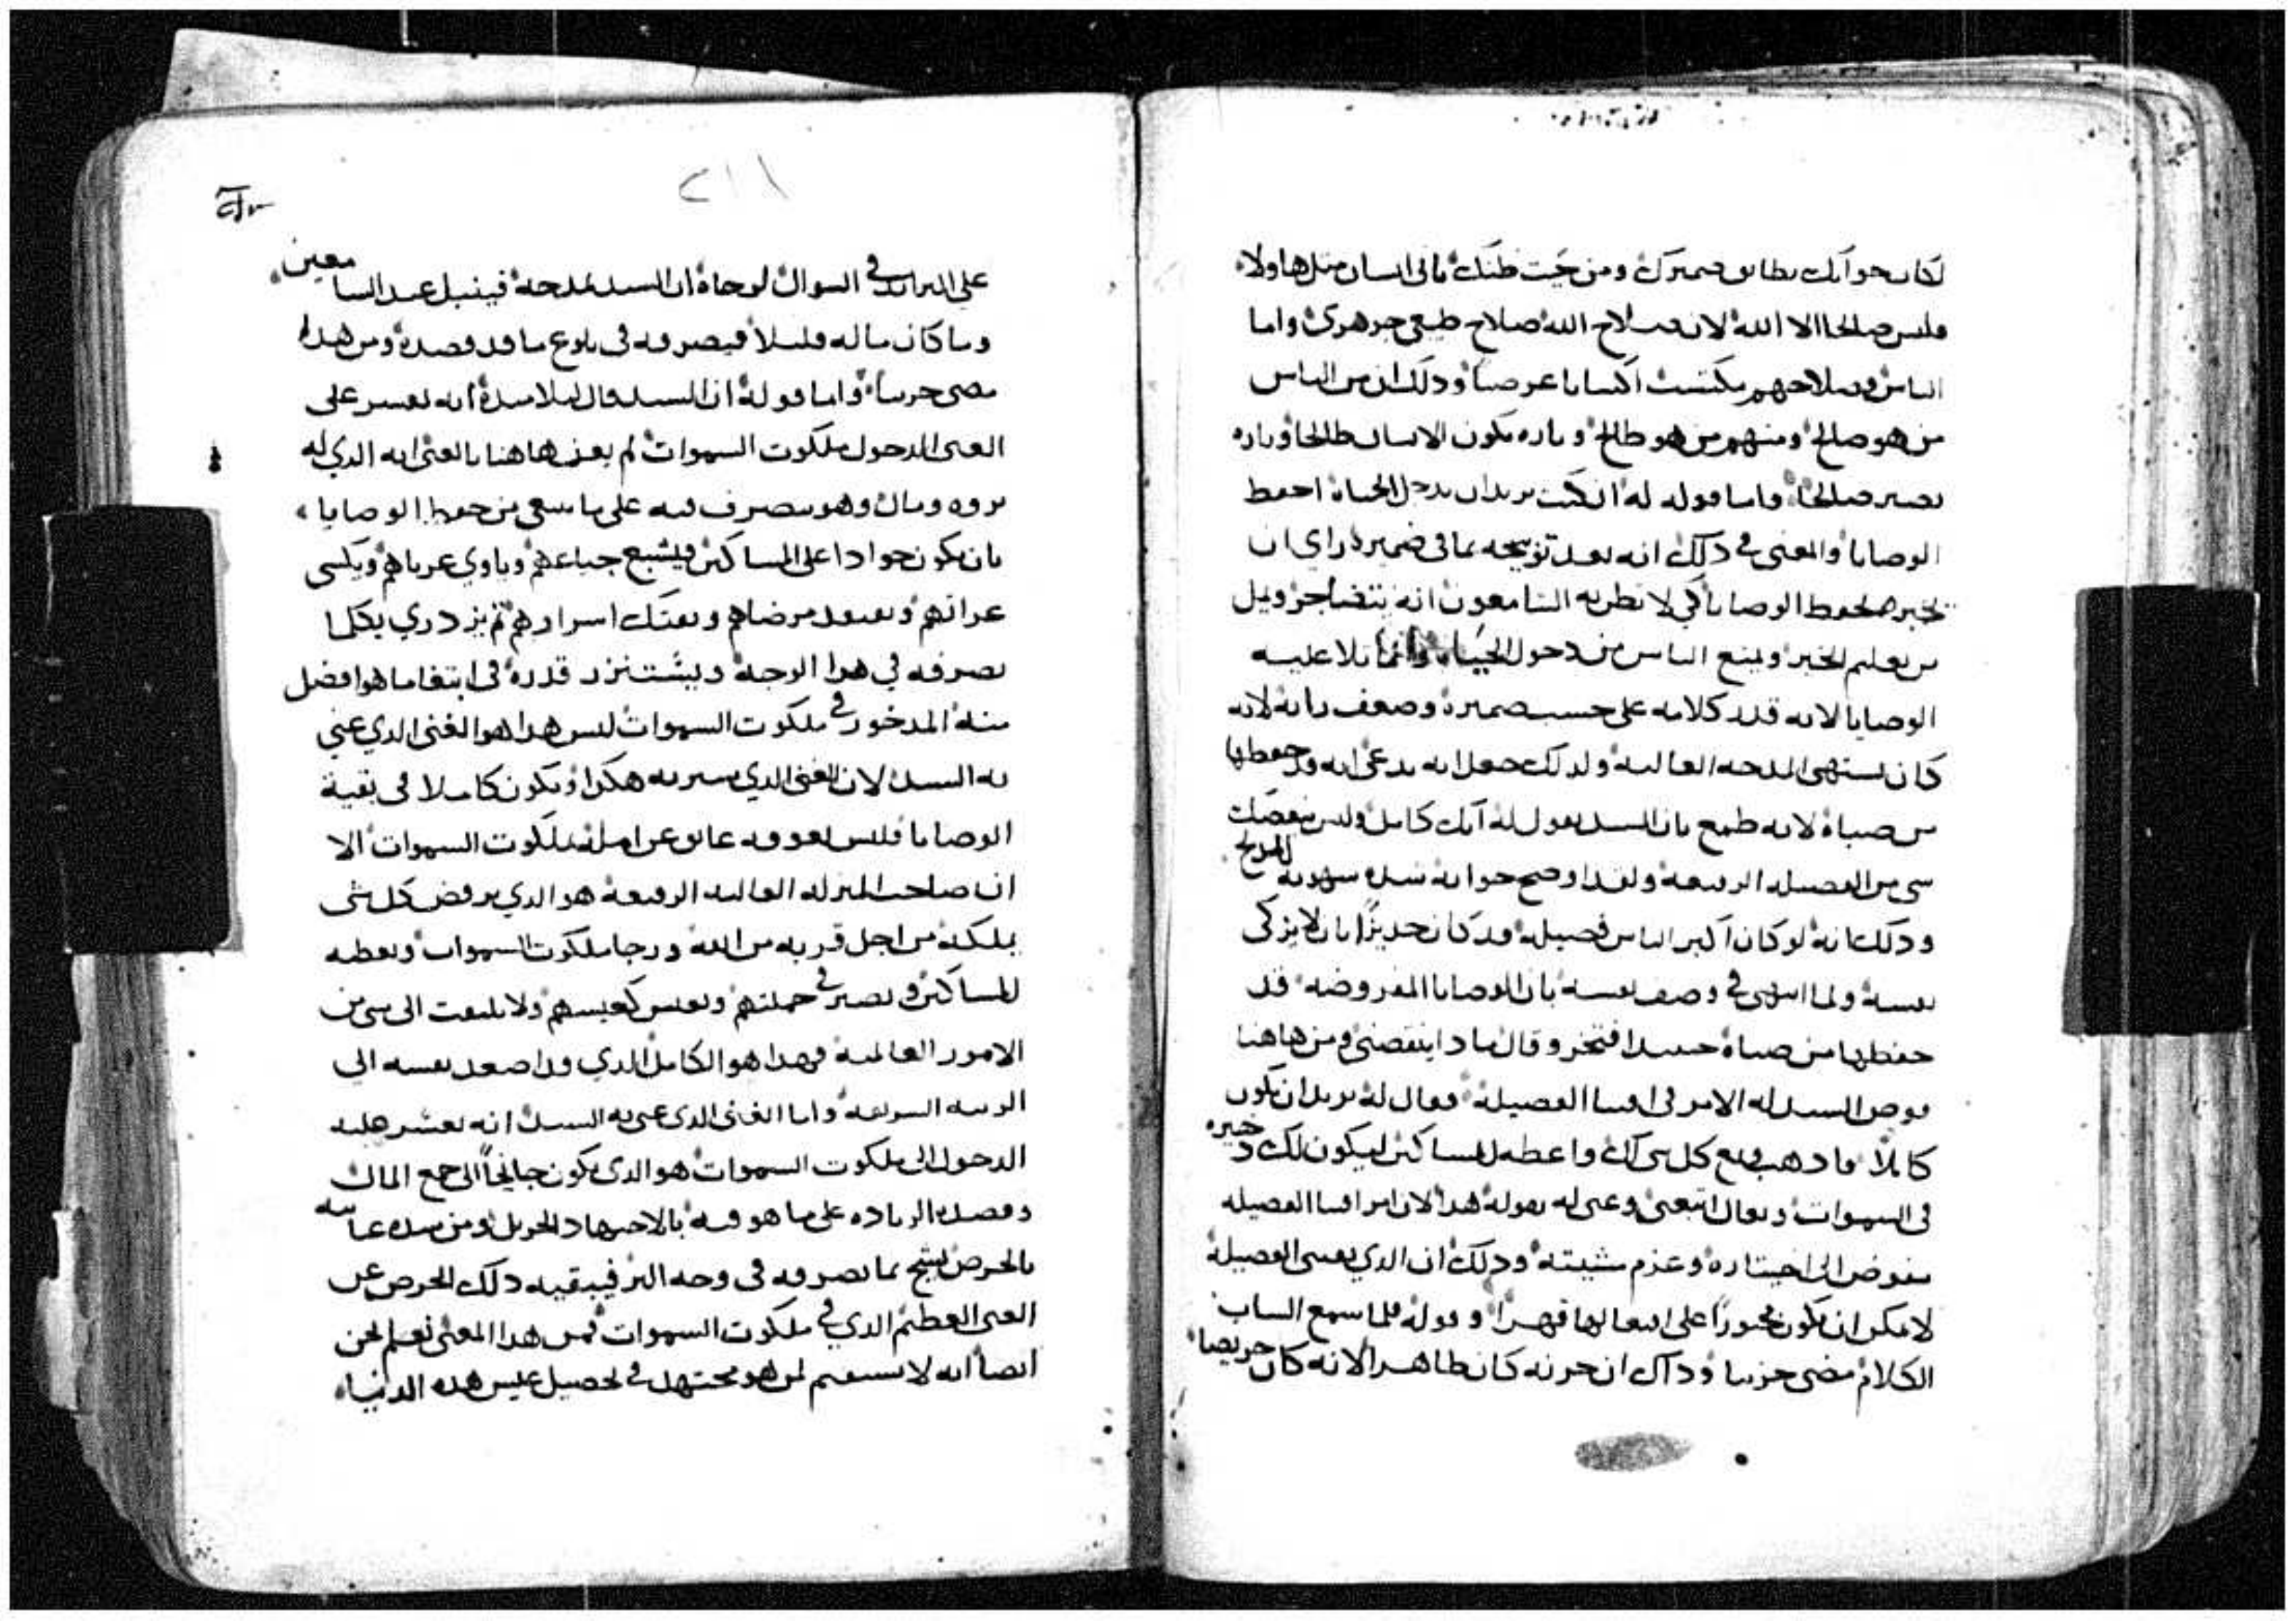 لكان جوابك يطابق ضميرك ومن حيث ظنك باني انسان مثل هاولاء
فليس صالحا الا الله لان صلاح الله صلاح طبيعي جوهري واما
الناس فصلاحهم مكتسب اكتسابا عرضيا وذلك ان من الناس
من هو صالح ومنهم من هو طالح وتاره يكون الانسان طالحا وتاره
يصير صالحا واما قوله له ان كنت تريد ان تدخل الحياة احفظ
الوصايا والمعنى في ذلك انه بعد توبيخه بما في ضميره راى ان
يخبره بحفظ الوصايا كي لا يظن به السامعون انه
من تعليم الخير ويمنع الناس من دخول الحياة وانما تلا عليه
الوصايا لانه قدر كلامه على حسب ضميره وضعف رايه لانه
كان يشتهي المدحه العاليه ولذلك جعل انه يدعى انه قد حفظها
من صباه لانه طمع بان السيد يقول له انك كامل وليس ينقصك
شي من الفضيله الرفيعه ولقد اوضح جوابه شده شهوته للمديح
وذلك انه لو كان اكبر الناس فضيله قد كان جديرا بان لا يزكى
نفسه ولما انتهى في وصف نفسه بان الوصايا المفروضه قد
حفظها من صباه حينيدا افتخر وقال ماذا ينقصني ومن هاهنا
فوض السيد له الامر في اقتنا الفضيلة فقال له تريد ان تكون
كاملا فاذهب وبع كل شي لك واعطه للمساكين ليكون لك ذخيره
في السموات وتعال اتبعني وعنى له بقوله هذا لان امر اقتنا الفضيله
مفوض الى اختياره وعزم مشيته وذلك ان الذي يقتني الفضيلة
لا يمكن ان يكون مجبورا على افعالها قهرا وقوله فلما سمع الشاب
الكلام مضى حزينا وذاك ان حزنه كان ظاهرا لانه كان حريصا
٢١١
على في السوال لرجاه ان السيد يمدحه فينبل عند السامعين
وما كان ماله قليلا فيصرفه في بلوغ ما قد قصده ومن هذا
مضى حزينا واما قوله ان السيد قال لتلاميذه انه يعسر على
الغنى الدخول ملكوت السموات لم يعن هاهنا بالغنى انه الذي له
ثروه ومال وهو يتصرف فيه على ما ينبغي من حفظ الوصايا
بان يكون جوادا على المساكين فيشبع جياعهم وياوي غرباهم ويكسى
عراتهم ويعود مرضاهم ويفتك اسراهم ثم يزدري بكلما
يصرفه في هذا الوجه ويستنزر قدره في ابتغا ما هو افضل
منه المدخور في ملكوت السموات ليس هذا هو الغنى الذي عني
به السيد لان الغنى الذي سيرته هكذا ويكون كاملا في بقية
الوصايا فليس يعوقه عايق عن امله ملكوت السموات الا
ان صاحب المنزله العاليه الرفيعه هو الذي يرفض كل شي
يملكه من اجل قربه من الله ورجا ملكوت السموات ويعطيه
للمساكين ويصير في جملتهم ويعيش كعيشهم ولا يلتفت الى شي من
الامور العالمية فهذا هو الكامل الذي قد اصعد نفسه الى
الرتبه الشريفه واما الغنى الذي عنى به السيد انه يعسر عليه
الدخول الى ملكوت السموات هو الذي يكون جانحا الى جمع المال
وقصده الزياده على ما هو فيه بالاجتهاد الجزيل ومن شده عنايته
بالحرص يشح بما يصرفه في وجه البر فيبقيه ذلك الحرص عن
الغنى العظيم الذي في ملكوت السموات فمن هذا المعنى نعلم نحن
ايضا انه لا يستقيم لمن هو مجتهد في تحصيل عيش هذه الدنياه